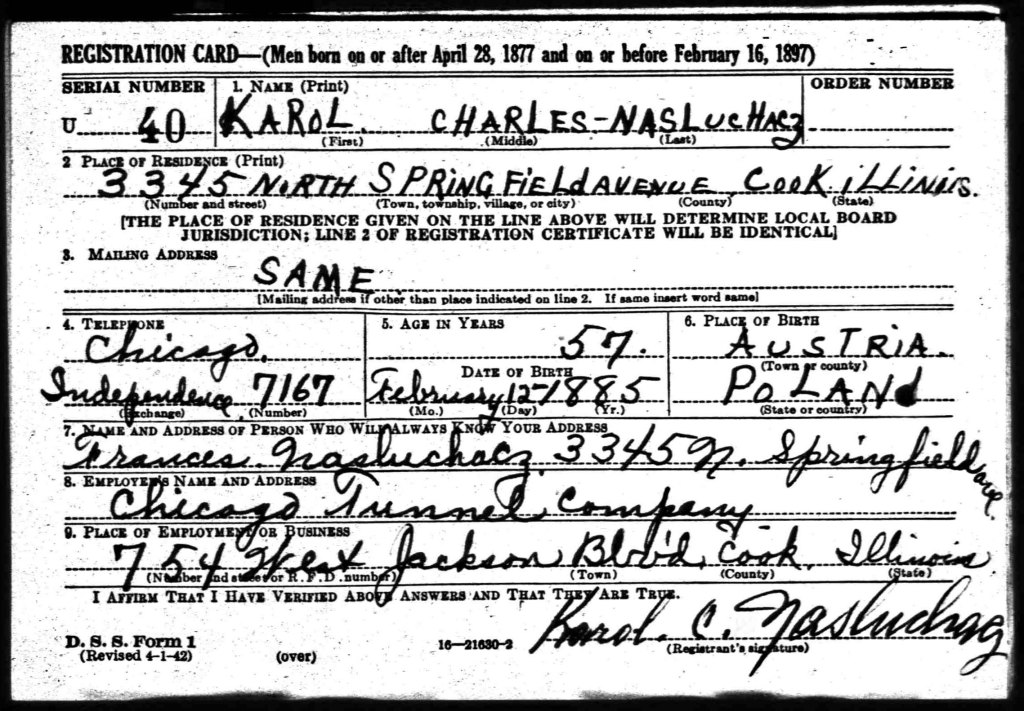 REGISTRATION CARD—(Men born on or after April 28, 1877 and on or before February 16, 1897)
SERIAL NUMBER 1. NAME (Print) ORDER NUMBER
U 40 KAROL. CHARLES-NASLUCHACZ
(First) (Middle) (Last)
2 PLACE OF RESIDENCE (Print)
3345 NORTH SPRINGFIELD AVENUE, COOK ILLINOIS.
(Number and street) (Town, township, village, or city) (County) (State)
[THE PLACE OF RESIDENCE GIVEN ON THE LINE ABOVE WILL DETERMINE LOCAL BOARD
JURISDICTION; LINE 2 OF REGISTRATION CERTIFICATE WILL BE IDENTICAL]
3. MAILING ADDRESS
SAME
[Mailing address if other than place indicated on line 2. If same insert word same]
4. TELEPHONE 5. AGE IN YEARS 6. PLACE OF BIRTH
Chicago. 57. AUSTRIA.
DATE OF BIRTH (Town or county)
Independence 7167 February 12-1885 POLAND
(Exchange) (Number) (Mo.) (Day) (Yr.) (State or country)
7. NAME AND ADDRESS OF PERSON WHO WILL ALWAYS KNOW YOUR ADDRESS
Frances Nasluchacz, 3345 N. Springfield ave.
8. EMPLOYER'S NAME AND ADDRESS
Chicago Tunnel Company
9. PLACE OF EMPLOYMENT OR BUSINESS
754 West Jackson Blv'd, Cook, Illinois
(Number and street or R. F. D. number) (Town) (County) (State)
I AFFIRM THAT I HAVE VERIFIED ABOVE ANSWERS AND THAT THEY ARE TRUE.
Karol. C. Nasluchacz
D. S. S. Form 1 16—21630-2 (Registrant's signature)
(Revised 4-1-42) (over)